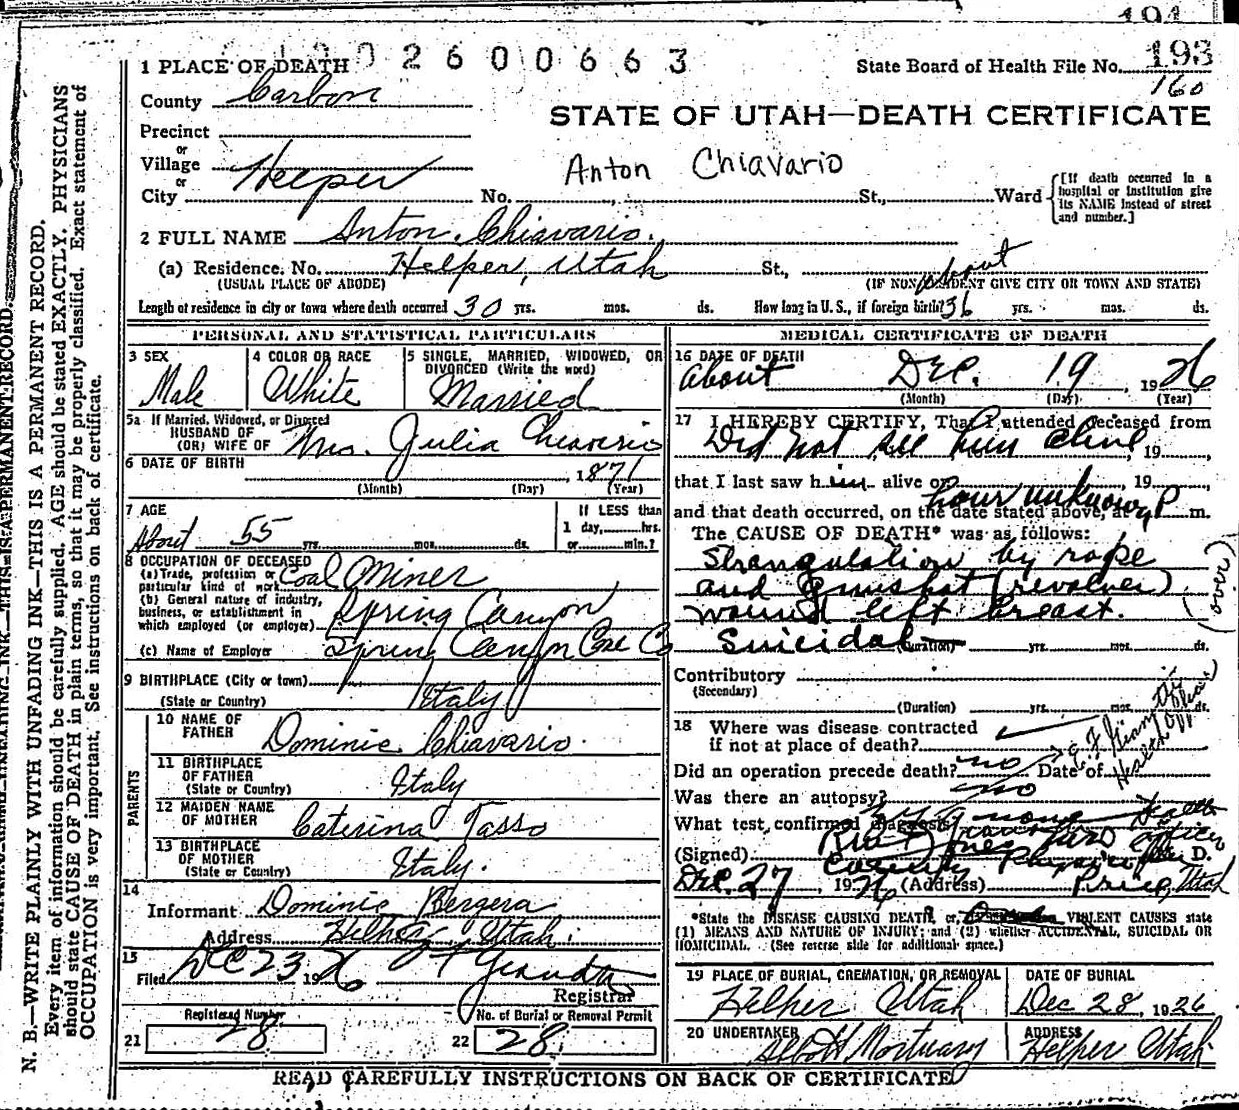 191
193
160
1 9 0 2 6 0 0 6 6 3
1 PLACE OF DEATH
State Board of Health File No.
County Carbon
STATE OF UTAH—DEATH CERTIFICATE
Precinct
or
Village
Anton Chiavario
or
City Helper No. St., Ward
[If death occurred in a hospital or institution give its NAME instead of street and number.]
2 FULL NAME Anton Chiavario.
(a) Residence. No. Helper, Utah St.,
(USUAL PLACE OF ABODE) (IF NONRESIDENT GIVE CITY OR TOWN AND STATE)
Length of residence in city or town where death occurred 30 yrs. mos. ds. How long in U.S., if foreign birth? about 36 yrs. mos. ds.
PERSONAL AND STATISTICAL PARTICULARS
3 SEX
Male
4 COLOR OR RACE
White
5 SINGLE, MARRIED, WIDOWED, OR DIVORCED (Write the word)
Married
5a If Married, Widowed, or Divorced
HUSBAND OF
(OR) WIFE OF Mrs. Julia Chiavario
6 DATE OF BIRTH , 1871
(Month) (Day) (Year)
7 AGE
About 55 yrs. mos. ds.
If LESS than
1 day, hrs.
or min.?
8 OCCUPATION OF DECEASED
(a) Trade, profession or particular kind of work Coal Miner
(b) General nature of industry, business, or establishment in which employed (or employer) Spring Canyon
(c) Name of Employer Spring Canyon Coal Co
9 BIRTHPLACE (City or town)
(State or Country) Italy
PARENTS
10 NAME OF FATHER Dominic Chiavario.
11 BIRTHPLACE OF FATHER
(State or Country) Italy
12 MAIDEN NAME OF MOTHER Caterina Tasso
13 BIRTHPLACE OF MOTHER
(State or Country) Italy.
14
Informant Dominic Bergera
Address Helper Utah.
15
Filed Dec 23 1926
Registrar
Registered Number
21 28
No. of Burial or Removal Permit
22 28
MEDICAL CERTIFICATE OF DEATH
16 DATE OF DEATH
About Dec. 19, 1926
(Month) (Day) (Year)
17 I HEREBY CERTIFY, That I attended deceased from
Did not see him alive, 19
that I last saw him alive on , 19
and that death occurred, on the date stated above, at hour unknown P m.
The CAUSE OF DEATH* was as follows:
Strangulation by rope
and Gunshot (revolver)
wound left breast.
(over)
Suicidal (Duration) yrs. mos. ds.
Contributory
(Secondary)
(Duration) yrs. mos. ds.
18 Where was disease contracted
if not at place of death?
Did an operation precede death? no Date of
Was there an autopsy? no
What test confirmed diagnosis? none
(Signed) M. D.
County Physician
Dec. 27, 1926 (Address) Price, Utah
*State the DISEASE CAUSING DEATH, or, VIOLENT CAUSES state
(1) MEANS AND NATURE OF INJURY; and (2) whether ACCIDENTAL, SUICIDAL OR
HOMICIDAL. (See reverse side for additional space.)
19 PLACE OF BURIAL, CREMATION, OR REMOVAL
Helper Utah
DATE OF BURIAL
Dec 28, 1926
20 UNDERTAKER
Mortuary
ADDRESS
Helper Utah
READ CAREFULLY INSTRUCTIONS ON BACK OF CERTIFICATE
N. B.—WRITE PLAINLY WITH UNFADING INK—THIS IS A PERMANENT RECORD.
Every item of information should be carefully supplied. AGE should be stated EXACTLY. PHYSICIANS
should state CAUSE OF DEATH in plain terms, so that it may be properly classified. Exact statement of
OCCUPATION is very important. See instructions on back of certificate.